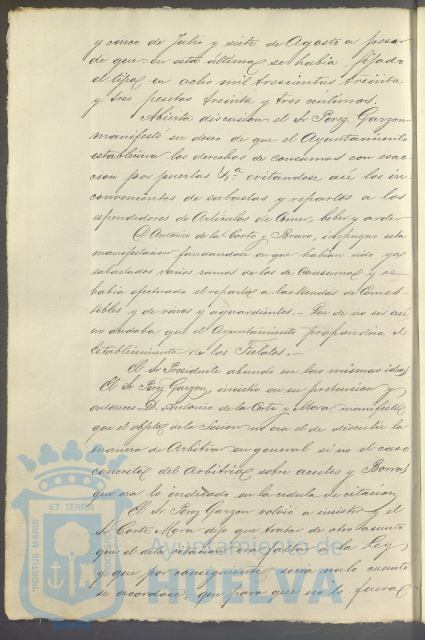 y cinco de Julio y siete de Agosto a pesar
de que en esta última se había fijado
el tipo en ocho mil trescientas treinta
y tres pesetas treinta y tres centimos.
Abierta discusion el Sr Perez Garzon
manifestó su deseo de que el Ayuntamiento
estableciera los derechos de consumos con exac
cion por puertas evitandose así los in
convenientes de subastas y repartos a los
espendedores de Articulos de Comer, beber y arder
D Antonio de la Corte y Bravo, impugno esta
manifestacion fundandose en que habian sido ya
subastados varios ramos de los de Consumos y se
habia efectuado el reparto a las tiendas de Comes
tibles y de vinos y aguardientes.- Que de no ser así
no dudaba que el Ayuntamiento propondria el
Establecimiento de los Fielatos.-
El Sr Presidente abundo en las mismas ideas
El Sr Perez Garzon, insistio en su pretension y
entonces D. Antonio de la Corte y Mora manifestó
que el objeto de la Sesion no era el de discutir la
manera de Arbitrar en general si no el caso
concreto del Arbitrio sobre aceites y Borras
que era lo indicado en la cedula de citacion
El Sr Perez Garzon volvió a insistir y el
Sr Corte Mora dijo que tratar de otro asunto
que el de la citacion era faltar a la Ley
y que por consiguiente seria nulo cuanto
se acordase; que para que no lo fuera
PORTUS MARIS
ET TERRAE
CUSTODIA
Ayuntamiento de
HUELVA